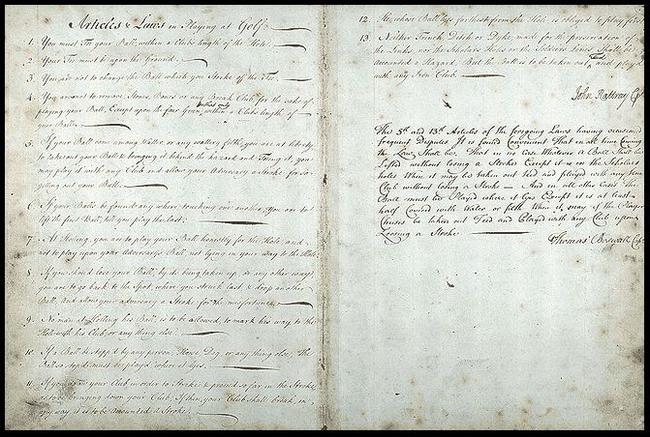 Articles & Laws in Playing at Golf.
1. You must Tee your Ball, within a Club's length of the Hole.
2. Your Tee must be upon the Ground.
3. You are not to change the Ball which you Stroke off the Tee.
4. You are not to remove Stones, Bones or any Break Club, for the sake of
playing your Ball, Except upon the fair Green, & that only within a Club's length of
your Ball.
5. If your Ball come among Water, or any watery filth, you are at liberty
to take out your Ball & bringing it behind the hazard and Teeing it, you
may play it with any Club and allow your Adversary a Stroke for so
getting out your Ball.
6. If your Balls be found any where touching one another, You are to
lift the first Ball, till you play the last.
7. At Holeing, you are to play your Ball honestly for the Hole, and
not to play upon your Adversary's Ball, not lying in your way to the Hole.
8. If you should lose your Ball, by its being taken up, or any other way,
you are to go back to the Spot, where you struck last & drop another
Ball, And allow your adversary a Stroke for the misfortune.
9. No man at Holling his Ball, is to be allowed, to mark his way to the
Hole with his Club or any thing else.
10. If a Ball be stopp'd by any person, Horse, Dog, or any thing else, The
Ball so stopp'd must be play'd where it lyes.
11. If you draw your Club in order to Stroke & proceed so far in the Stroke,
as to be bringing down your Club; If then, your Club shall break, in
any way, it is to be Accounted a Stroke.
12. He, whose Ball lyes farthest from the Hole is obliged to play first.
13. Neither Trench, Ditch or Dyke, made for the preservation of
the Links, nor the Scholar's Holes or the Soldier's Lines, Shall be
accounted a Hazard. But the Ball is to be taken out, Teed and play'd
with any Iron Club.
John Rattray Cpt
The 5th and 13th Articles of the foregoing Laws having occasioned
frequent Disputes It is found Convenient That in all time Coming
the Law Shall be, That in no Case Whatever a Ball Shall be
Lifted without losing a Stroke Except it is in the Scholars
holes When it may be taken out teed and played with any Iron
Club without losing a Stroke — And in all other Cases the
Ball must be Played where it lyes Except it is at least
half Covered with Water or filth When it may if the Player
Chuses be taken out Teed and Played with any Club upon
Loosing a Stroke
Thomas Boswall Cpt